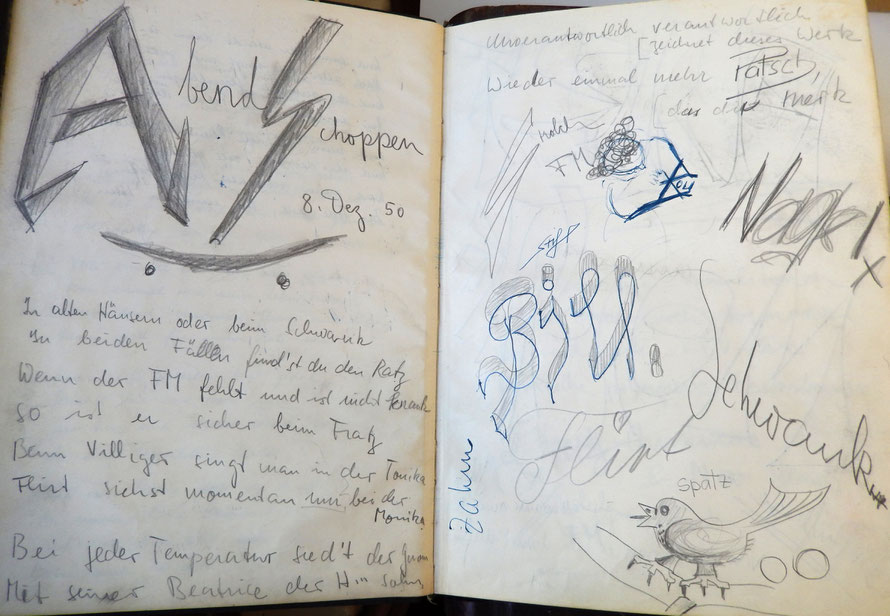 Abend
Schoppen
8. Dez. 50
In alten Häusern oder beim Schwank
In beiden Fällen find'st du den Ratz
Wenn der FM fehlt und ist nicht krank
So ist er sicher beim Fratz
Beim Villiger singt man in der Tonika
Flirt siehst momentan nur bei der
Monika
Bei jeder Temperatur sied't der
Mit seiner Beatrice der H
Unverantwortlich verantwortlich
[zeichnet dieses Werk
Wieder einmal mehr Patsch,
[das du merk
FM
Nagel
Stift
Bill.
Schwank
Flirt
Zahm
Spatz